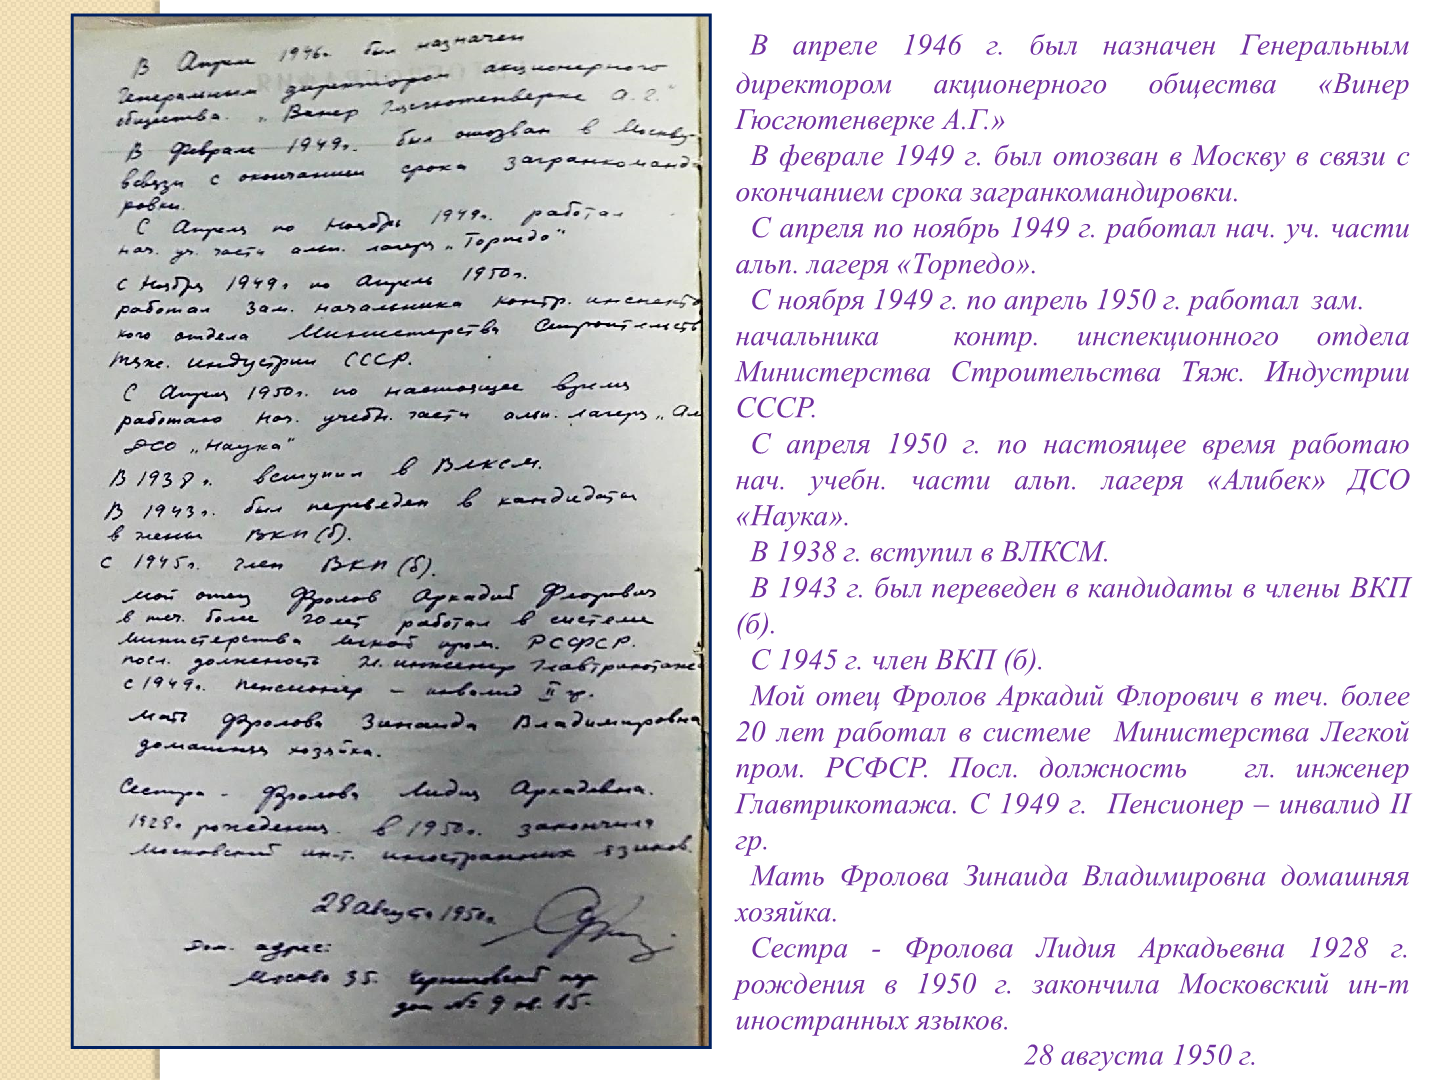 В Апреле 1946г. был назначен
Генеральным директором акционерного
общества. „Винер Гюсгютенверке А.Г."
В Феврале 1949г. был отозван в Москву
в связи с окончанием срока загранкоманд
ровки.
С Апреля по Ноябрь 1949г. работал
нач. уч. части альп. лагеря „Торпедо"
С Ноября 1949г по Апрель 1950г.
работал Зам. начальника контр. инспекто
кого отдела Министерства Строительств
тяж. индустрии СССР.
С Апреля 1950г. по настоящее время
работаю нач. учебн. части альп. лагеря „Ал
ДСО „Наука"
В 1938г. вступил в ВЛКСМ.
В 1943г. был переведен в кандидаты
в члены ВКП(б).
С 1945г. член ВКП(б).
Мой отец Фролов Аркадий Флорович
в теч. более 20 лет работал в системе
Министерства легкой пром. РСФСР.
посл. должность гл. инженер Главтрикотаже
с 1949г. пенсионер – инвалид II гр.
Мать Фролова Зинаида Владимировна
домашняя хозяйка.
Сестра - Фролова Лидия Аркадьевна.
1928г рождения. в 1950г. закончила
Московский ин-т. иностранных языков.
28 августа 1950г.
Дом. адрес:
Москва 35. Черниговский пер
дом № 9 кв. 15.
В апреле 1946 г. был назначен Генеральным
директором акционерного общества «Винер
Гюсгютенверке А.Г.»
В феврале 1949 г. был отозван в Москву в связи с
окончанием срока загранкомандировки.
С апреля по ноябрь 1949 г. работал нач. уч. части
альп. лагеря «Торпедо».
С ноября 1949 г. по апрель 1950 г. работал зам.
начальника контр. инспекционного отдела
Министерства Строительства Тяж. Индустрии
СССР.
С апреля 1950 г. по настоящее время работаю
нач. учебн. части альп. лагеря «Алибек» ДСО
«Наука».
В 1938 г. вступил в ВЛКСМ.
В 1943 г. был переведен в кандидаты в члены ВКП
(б).
С 1945 г. член ВКП (б).
Мой отец Фролов Аркадий Флорович в теч. более
20 лет работал в системе Министерства Легкой
пром. РСФСР. Посл. должность гл. инженер
Главтрикотажа. С 1949 г. Пенсионер – инвалид II
гр.
Мать Фролова Зинаида Владимировна домашняя
хозяйка.
Сестра - Фролова Лидия Аркадьевна 1928 г.
рождения в 1950 г. закончила Московский ин-т
иностранных языков.
28 августа 1950 г.